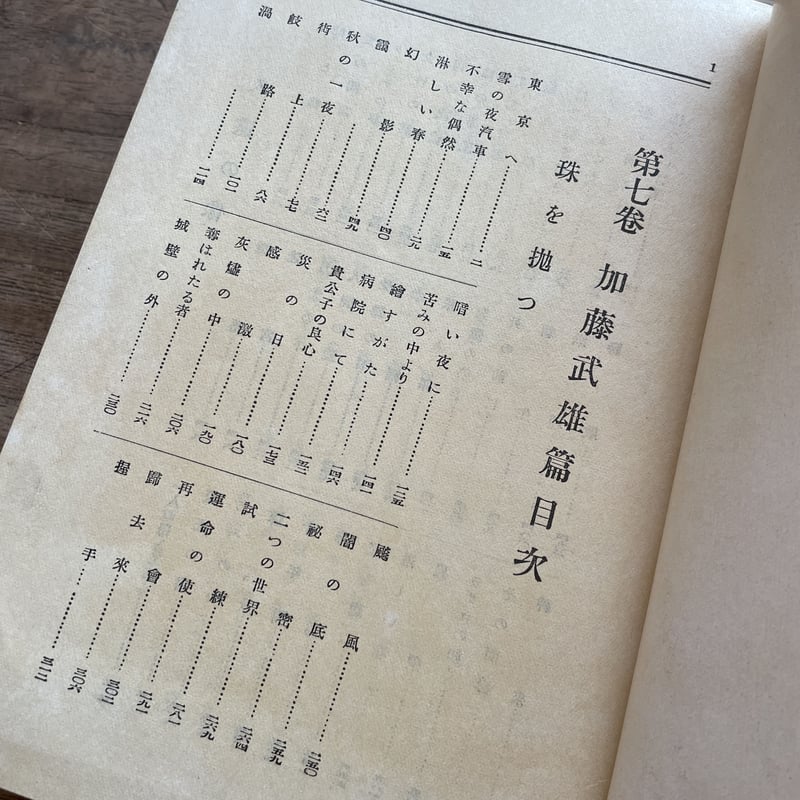 1
第七卷 加藤武雄篇目次
珠を抛つ
東京へ……二
雪の夜汽車……一五
不幸な偶然……二九
淋しい春……四〇
幻影……四九
靄……六二
秋の一夜……七七
街上……八六
岐路……一〇一
渦……一一四
暗い夜に……一三五
苦みの中より……一四一
繪すがた……一四六
病院にて……一五二
貴公子の良心……一七三
災の日……一八〇
感激……一九〇
灰燼の中……二〇六
奪はれたる者……二一六
城壁の外……二三〇
颷風……二五〇
闇の底……二五九
祕密……二六四
二つの世界……二六九
試練……二八一
運命の使……二九一
再會……三〇二
歸去來……三〇六
握手……三一二